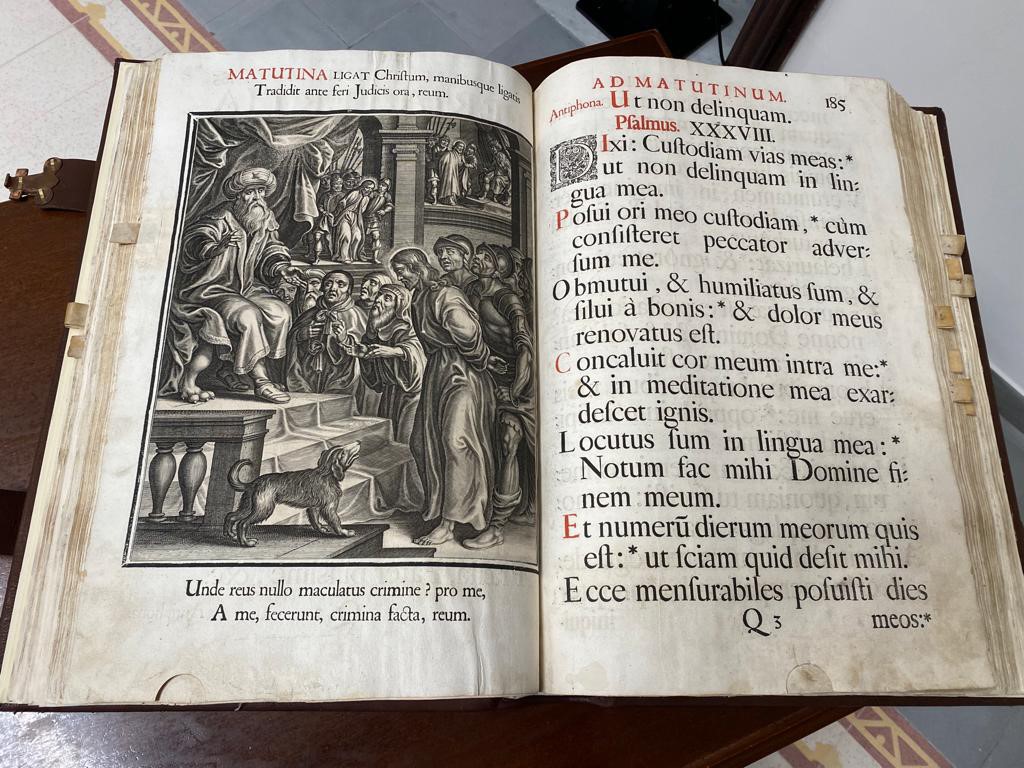 MATUTINA LIGAT Chriſtum, manibusque ligatis
Tradidit ante feri Judicis ora, reum.
Unde reus nullo maculatus crimine ? pro me,
A me, fecerunt, crimina facta, reum.
AD MATUTINUM. 185
Antiphona. Ut non delinquam.
Pſalmus. XXXVIII.
DIxi: Cuſtodiam vias meas:*
ut non delinquam in lin-
gua mea.
Poſui ori meo cuſtodiam,* cùm
conſiſteret peccator adver-
ſum me.
Obmutui, & humiliatus ſum, &
ſilui à bonis:* & dolor meus
renovatus eſt.
Concaluit cor meum intra me:*
& in meditatione mea exar-
deſcet ignis.
Locutus ſum in lingua mea:*
Notum fac mihi Domine fi-
nem meum.
Et numerũ dierum meorum quis
eſt:* ut ſciam quid deſit mihi.
Ecce menſurabiles poſuiſti dies
Q 3 meos:*